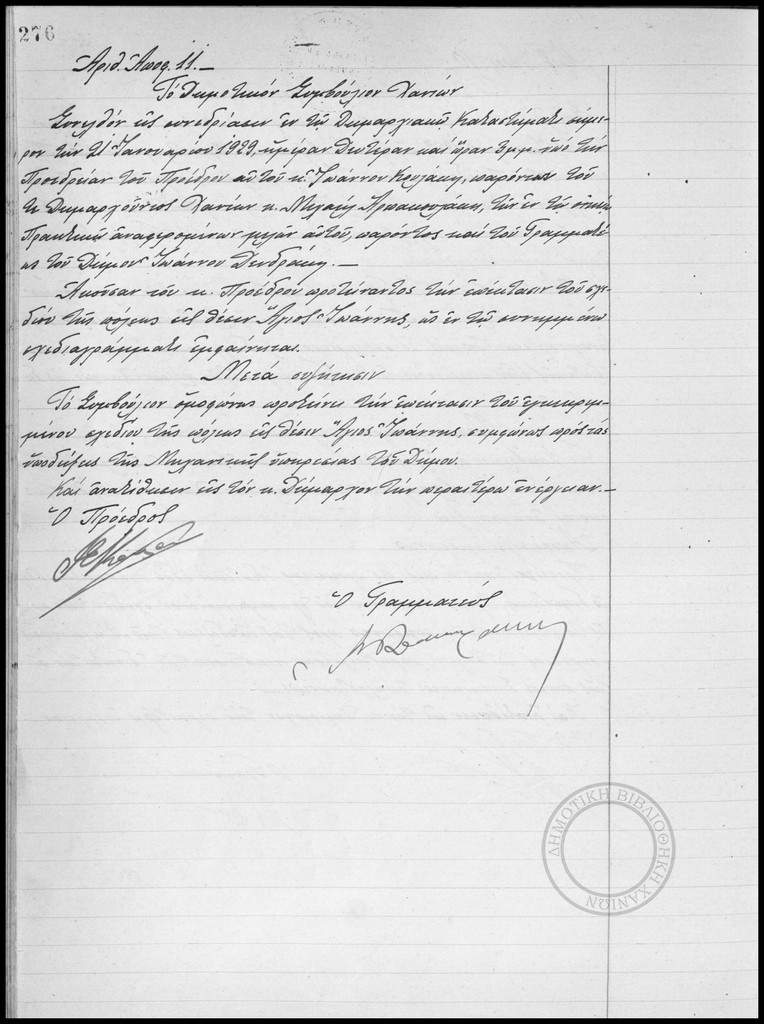 276
Ἀριθ. Ἀποφ. 11.—
Τό Δημοτικόν Συμβούλιον Χανίων
Συνελθόν εἰς συνεδρίασιν ἐν τῷ Δημαρχιακῷ Καταστήματι σήμε-
ρον τήν 21 Ἰανουαρίου 1929, ἡμέραν Δευτέραν καί ὥραν 3 μ.μ. ὑπό τήν
Προεδρείαν τοῦ Προέδρου αὐτοῦ κ. Ἰωάννου παρόντων τοῦ
κ. Δημαρχοῦντος Χανίων κ. Μιχαήλ τῶν ἐν τῷ οἰκείῳ
Πρακτικῷ ἀναφερομένων μελῶν αὐτοῦ, παρόντος καί τοῦ Γραμματέ-
ως τοῦ Δήμου Ἰωάννου Δενδράκη.—
Ἀκοῦσαν τοῦ κ. Προέδρου προτείναντος τήν ἐπέκτασιν τοῦ σχε-
δίου τῆς πόλεως εἰς θέσιν Ἅγιος Ἰωάννης, ὡς ἐν τῷ συνημμένῳ
σχεδιαγράμματι ἐμφαίνεται.
Μετά συζήτησιν
Τό Συμβούλιον ὁμοφώνως προτείνει τήν ἐπέκτασιν τοῦ ἐγκεκριμ-
μένου σχεδίου τῆς πόλεως εἰς θέσιν Ἅγιος Ἰωάννης, συμφώνως πρός τάς
ὑποδείξεις τῆς Μηχανικῆς ὑπηρεσίας τοῦ Δήμου.
Καί ἀνατίθησιν εἰς τόν κ. Δήμαρχον τήν περαιτέρω ἐνέργειαν.—
Ὁ Πρόεδρος
Ὁ Γραμματεύς
ΔΗΜΟΤΙΚΗ ΒΙΒΛΙΟΘΗΚΗ ΧΑΝΙΩΝ